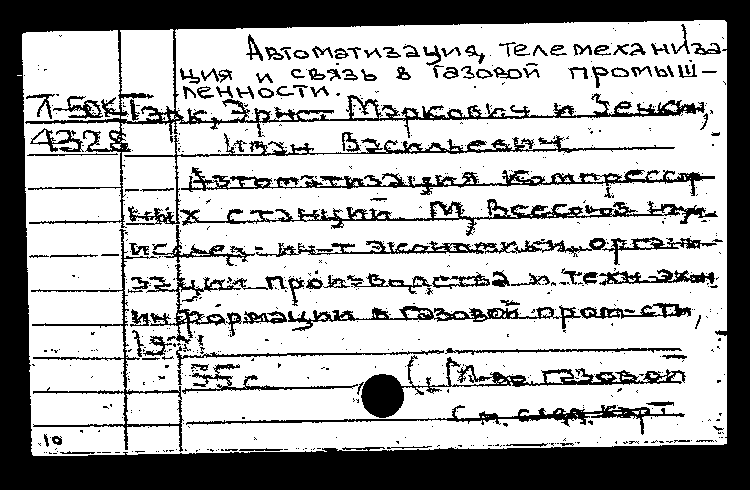 Автоматизация, телемеханиза-
ция и связь в газовой промыш-
ленности.
Л-50К Гарк, Эрнст Маркович и Зенкин,
4328 Иван Васильевич
Автоматизация компрессор-
ных станций. М, Всесоюз науч.
исслед. ин-т экономики, органи-
зации производства и техн-экон
информации в газовой пром-сти,
1971
55 с. (М-во газовой
См. след. карт
10